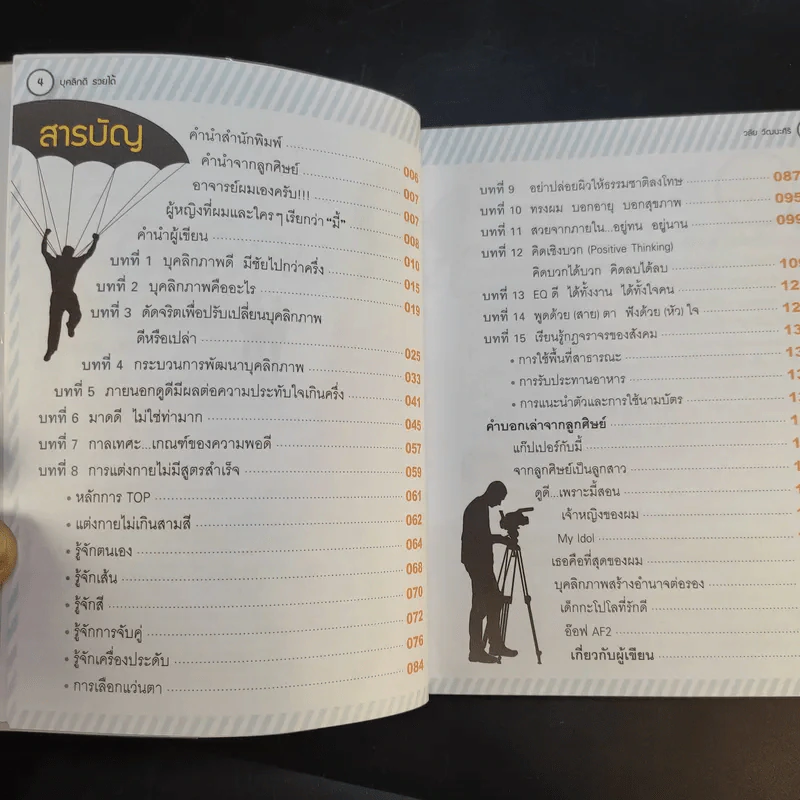 4 บุคลิกดี รวยได้
สารบัญ
คำนำสำนักพิมพ์ 006
คำนำจากลูกศิษย์ 007
อาจารย์ผมเองครับ!!! 007
ผู้หญิงที่ผมและใครๆ เรียกว่า “มี้” 008
คำนำผู้เขียน 010
บทที่ 1 บุคลิกภาพดี มีชัยไปกว่าครึ่ง 015
บทที่ 2 บุคลิกภาพคืออะไร 019
บทที่ 3 ดัดจริตเพื่อปรับเปลี่ยนบุคลิกภาพ
ดีหรือเปล่า 025
บทที่ 4 กระบวนการพัฒนาบุคลิกภาพ 033
บทที่ 5 ภายนอกดูดีมีผลต่อความประทับใจเกินครึ่ง 041
บทที่ 6 มาดดี ไม่ใช่ท่ามาก 045
บทที่ 7 กาลเทศะ...เกณฑ์ของความพอดี 057
บทที่ 8 การแต่งกายไม่มีสูตรสำเร็จ 059
• หลักการ TOP 061
• แต่งกายไม่เกินสามสี 062
• รู้จักตนเอง 064
• รู้จักเส้น 068
• รู้จักสี 070
• รู้จักการจับคู่ 072
• รู้จักเครื่องประดับ 076
• การเลือกแว่นตา 084
วลัย วัฒนะศิริ
บทที่ 9 อย่าปล่อยผิวให้ธรรมชาติลงโทษ 087
บทที่ 10 ทรงผม บอกอายุ บอกสุขภาพ 095
บทที่ 11 สวยจากภายใน...อยู่ทน อยู่นาน 099
บทที่ 12 คิดเชิงบวก (Positive Thinking)
คิดบวกได้บวก คิดลบได้ลบ
บทที่ 13 EQ ดี ได้ทั้งงาน ได้ทั้งใจคน
บทที่ 14 พูดด้วย (สาย) ตา ฟังด้วย (หัว) ใจ
บทที่ 15 เรียนรู้กฎจราจรของสังคม
• การใช้พื้นที่สาธารณะ
• การรับประทานอาหาร
• การแนะนำตัวและการใช้นามบัตร
คำบอกเล่าจากลูกศิษย์
แก๊ปเปอร์กับมี้
จากลูกศิษย์เป็นลูกสาว
ดูดี...เพราะมี้สอน
เจ้าหญิงของผม
My Idol
เธอคือที่สุดของผม
บุคลิกภาพสร้างอำนาจต่อรอง
เด็กกะโปโลที่รักดี
อ๊อฟ AF2
เกี่ยวกับผู้เขียน